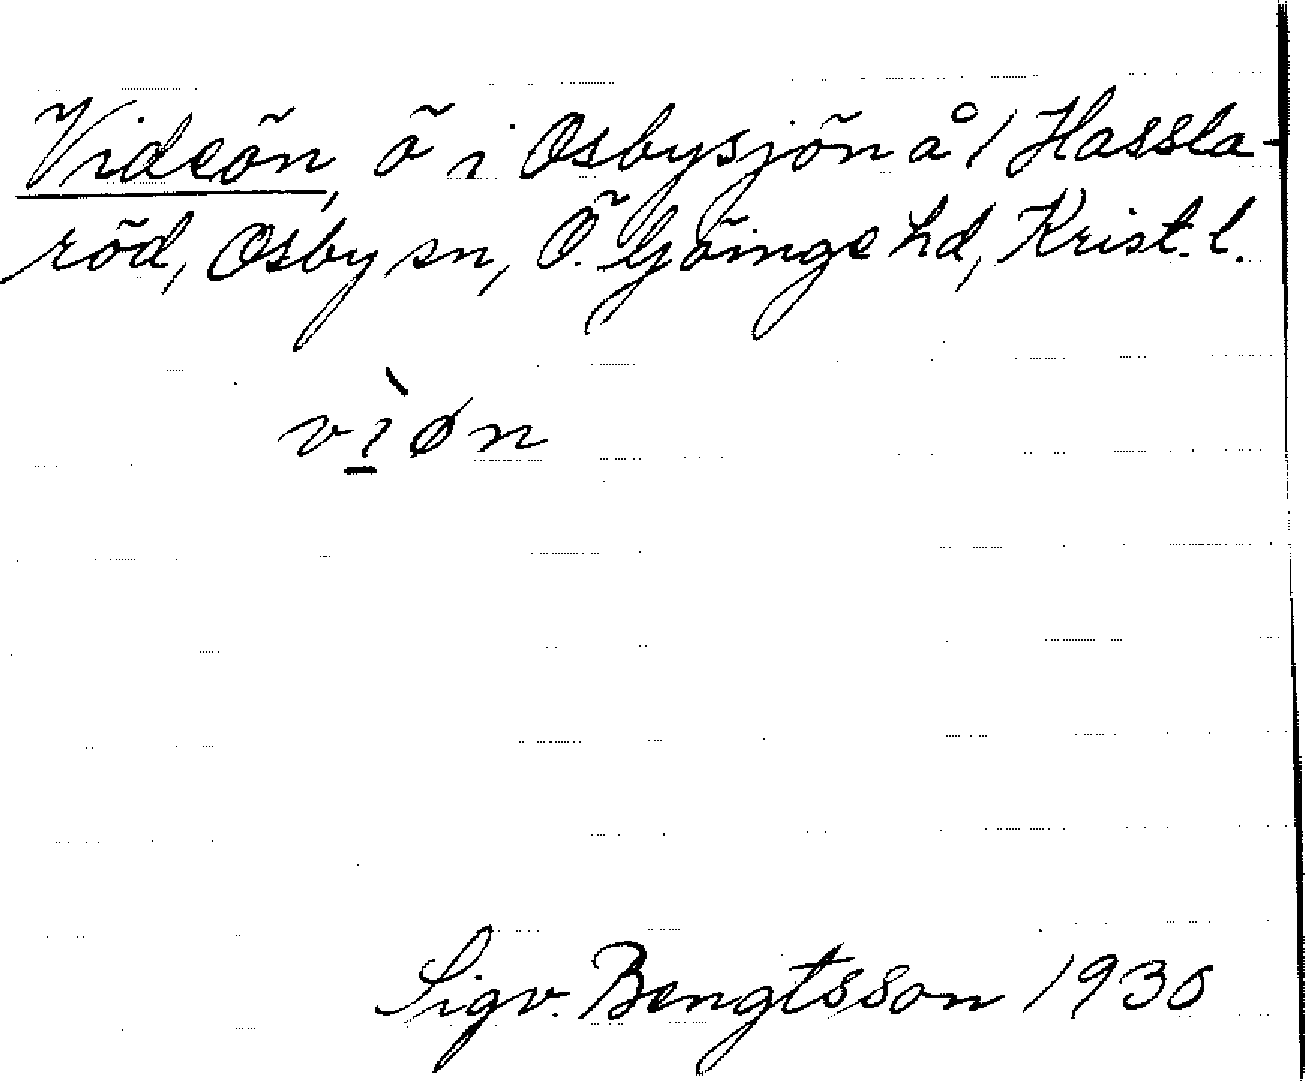 Videön, ö i Osbysjön å 1 Hassla-
röd, Osby sn, Ö. Göinge hd, Krist. l.
vì̠øn
Sigv. Bengtsson 1930